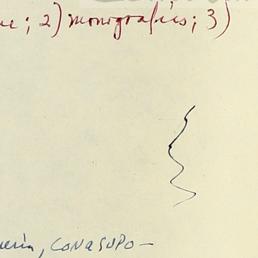 ; 2) monografías; 3)
CONASUPO —